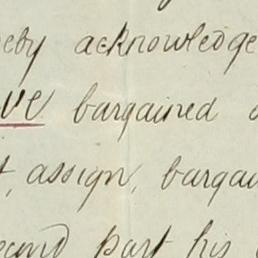 eby acknowledge
ve bargained
t, assign, bargai
econd part his